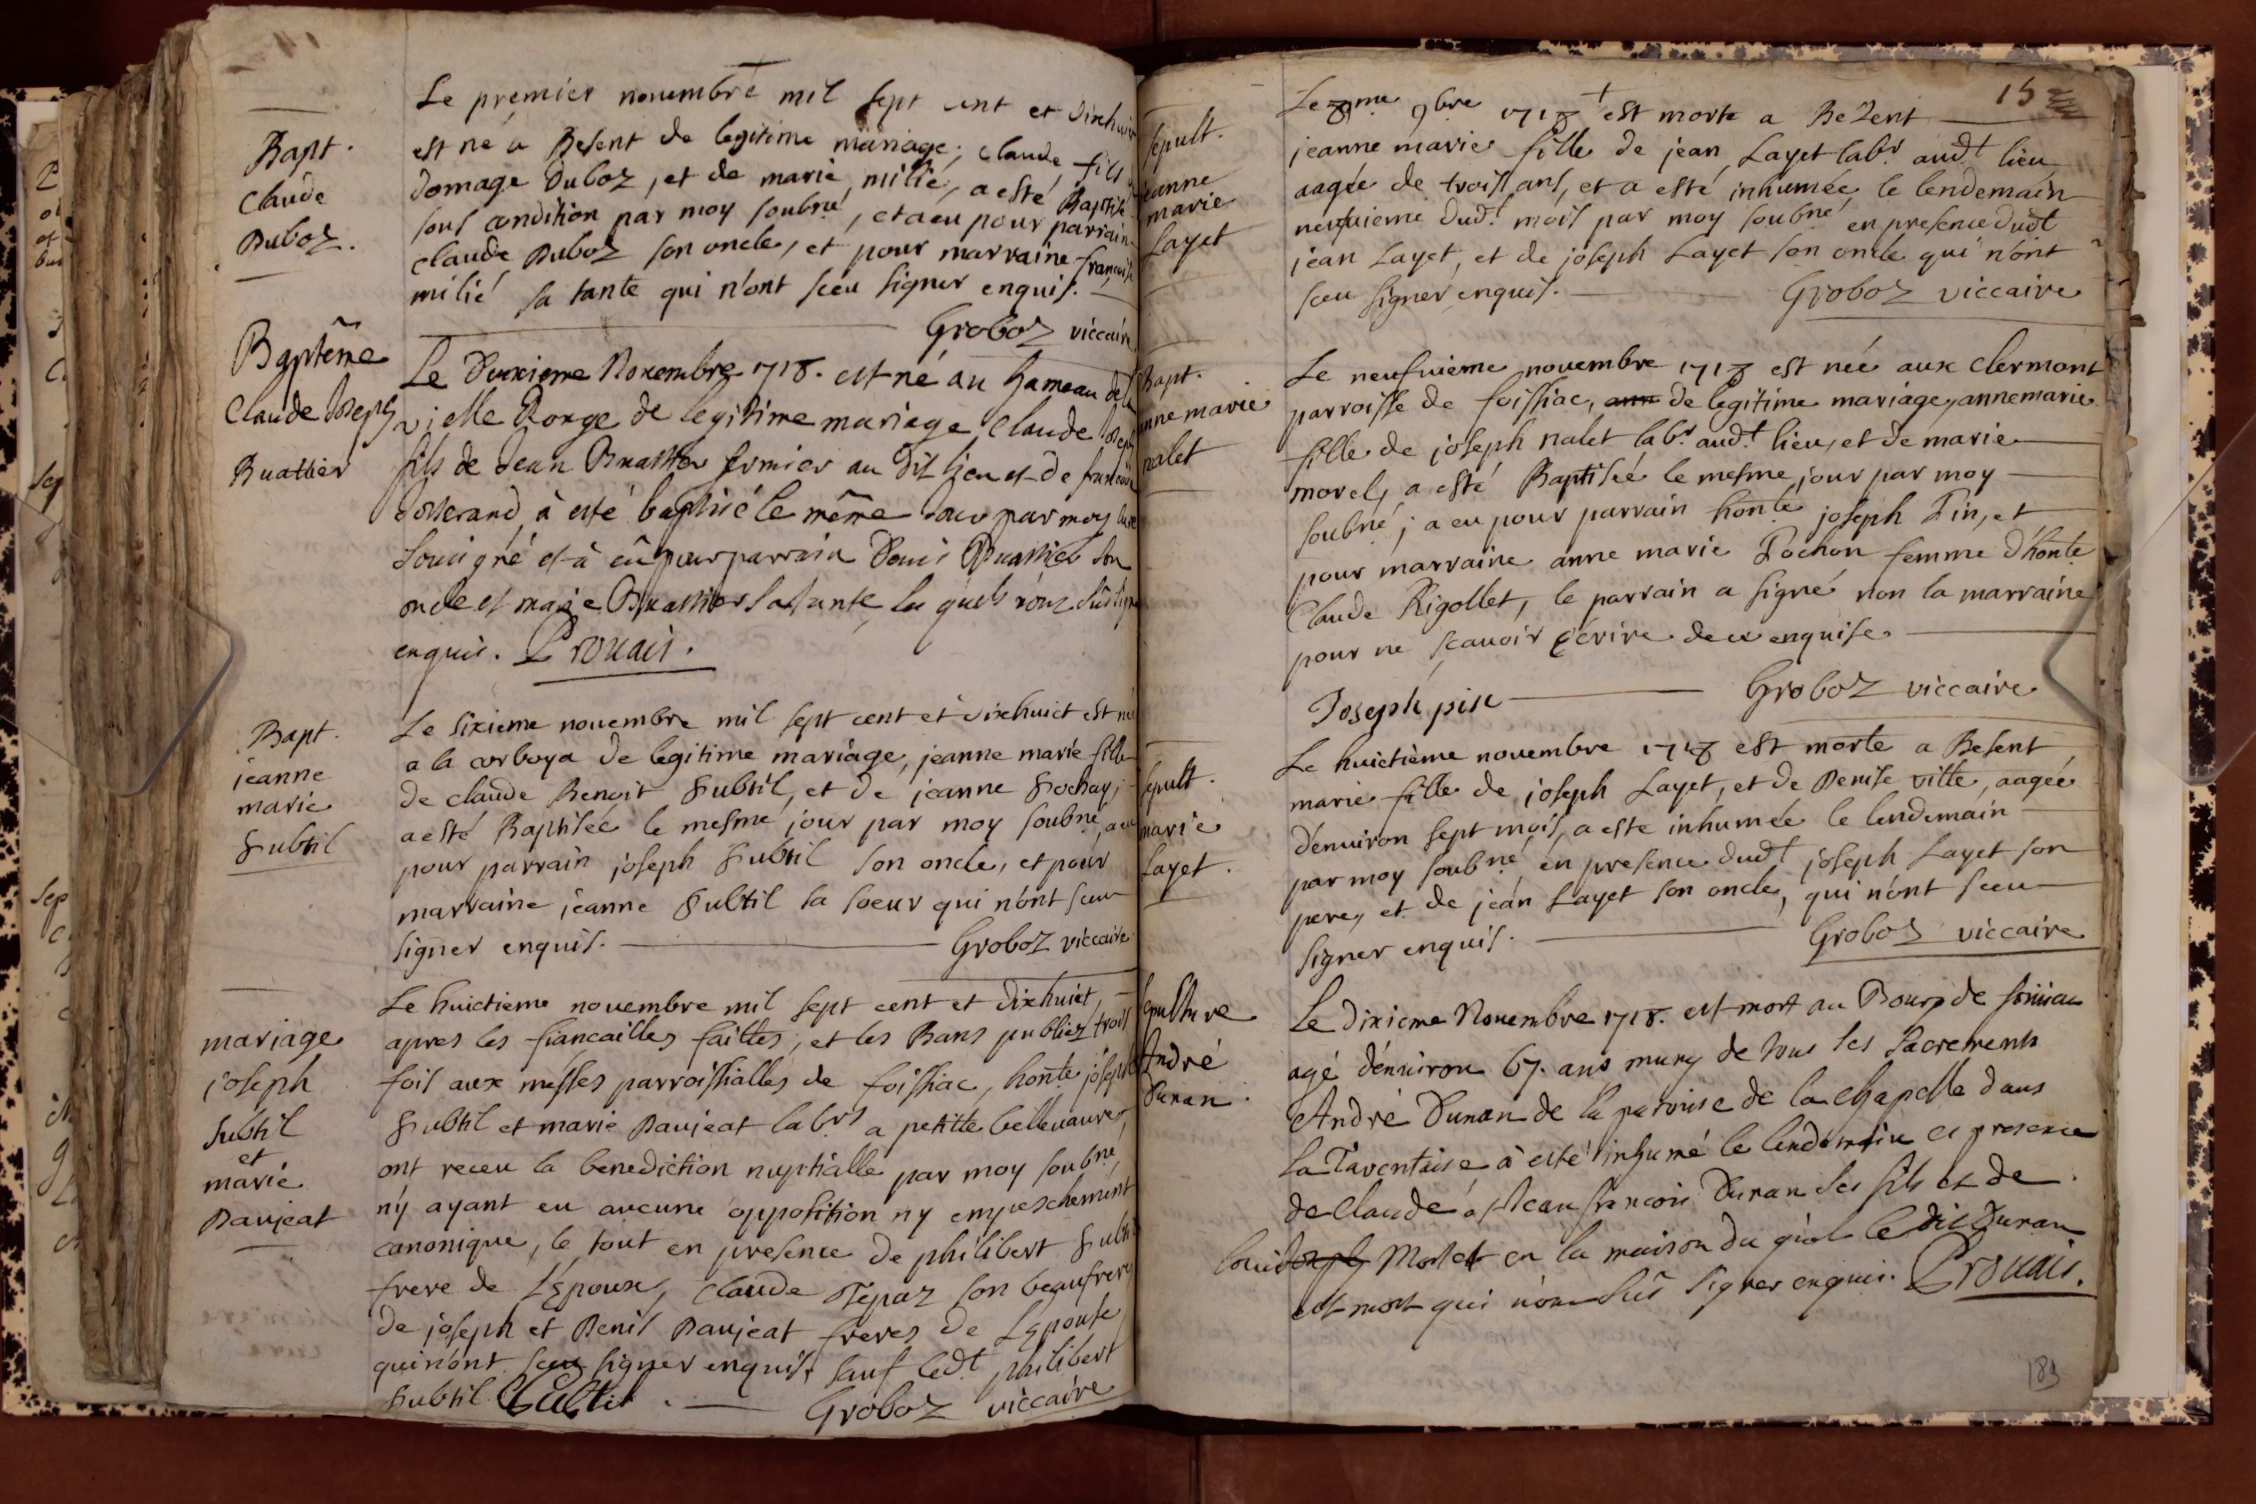 Bapt.
Claude
Duboz.
Le premier novembre mil sept cent et dixhuit
est né a Besent de legitime mariage, claude, fils
domage Duboz, et de marie milié, a esté Baptisé
sous condition par moy soubné, et a eu pour parrain
claude Duboz son oncle, et pour marraine françoise
milié sa tante qui n'ont sceu signer enquis.
Groboz viccaire
Baptême
Claude Joseph
Buattier
Le deuxieme Novembre 1718. est né au hameau de la
vielle Rouge de legitime mariage Claude Joseph
fils de Jean Buattier fermier au dit lieu et de
à esté baptisé le même Jour par moy curé
soussigné et à eû pour parrain Denis Buattier son
oncle et marie Buattier sa tante les quels n'ont sûs signer
enquis. Drouais.
Bapt.
jeanne
marie
subtil
Le sixieme novembre mil sept cent et dixhuict est née
a la corboya de legitime mariage, jeanne marie fille
de claude Benoit subtil, et de jeanne Sochay;
a esté Baptisée le mesme jour par moy soubné, a eu
pour parrain joseph subtil son oncle, et pour
marraine jeanne subtil sa soeur qui n'ont sceu
signer enquis. Groboz viccaire
mariage
joseph
subtil
et
marie
Daujeat
Le huictieme novembre mil sept cent et dixhuict,
apres les fiancailles faittes, et les Bans publiez trois
fois aux messes parroissialles de foissiac, honte joseph
subtil et marie Daujeat labrs a petitte bellevavre,
ont receu la benediction nuptialle par moy soubné,
n'y ayant eu aucune opposition ny empeschement
canonique, le tout en presence de philibert subtil
frere de l'Epoux, claude Tepaz son beaufrere
de joseph et Denis Daujeat freres de l'Epouse
qui n'ont sceu signer enquis, sauf ledt philibert
subtil. Subtil Groboz viccaire
15
sepult.
jeanne
marie
Layet
Le 8me 9bre 1718 est morte a Bezent
jeanne marie fille de jean Layet labr audt lieu
aagée de trois ans, et a esté inhumée le lendemain
neufvieme dudt mois par moy soubné en presence dudt
jean Layet, et de joseph Layet son oncle qui n'ont
sceu signer enquis. Groboz viccaire
Bapt.
anne marie
nalet
Le neufvieme novembre 1718 est née aux clermont
parroisse de foissiac, ann de legitime mariage, anne marie
fille de joseph nalet labr audt lieu, et de marie
morel, a esté Baptisée le mesme jour par moy
soubné; a eu pour parrain honte joseph Pin, et
pour marraine anne marie Pochon femme d'honte
Claude Rigollet, le parrain a signé non la marraine
pour ne scavoir écrire de ce enquise
Joseph pin Groboz viccaire
sepult.
marie
Layet.
Le huictième novembre 1718 est morte a Besent
marie fille de joseph Layet, et de Denise ville, aagée
d'environ sept mois, a este inhumée le lendemain
par moy soubné en presence dudt joseph Layet son
pere, et de jean Layet son oncle, qui n'ont sceu
signer enquis. Groboz viccaire
sepulture
André
Duran.
Le dixieme Novembre 1718. est mort au Bourg de foissiac
agé d'environ 67. ans muny de tous les Sacrements
André Duran de la paroisse de la chapelle dans
la Tarentaise à esté inhumé le lendemain en presence
de Claude & Jean françois Duran ses fils et de
Louis Joseph Morlet en la maison du quel le dit Duran
est mort qui n'ont sûs signer enquis. Drouais.
183